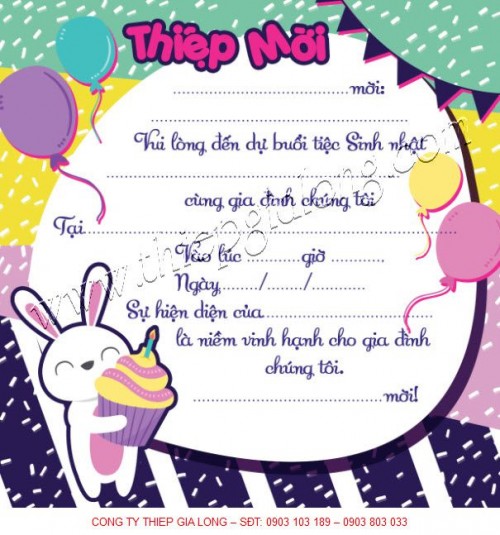 Thiệp Mời
..............................mời:
..............................
Vui lòng đến dự buổi tiệc Sinh nhật
..............................
cùng gia đình chúng tôi
Tại..............................
Vào lúc ............giờ ............
Ngày......../......../............
Sự hiện diện của..............................
là niềm vinh hạnh cho gia đình
chúng tôi.
..............................mời!
www.thiepgialong.com
CÔNG TY THIEP GIA LONG – SĐT: 0903 103 189 – 0903 803 033